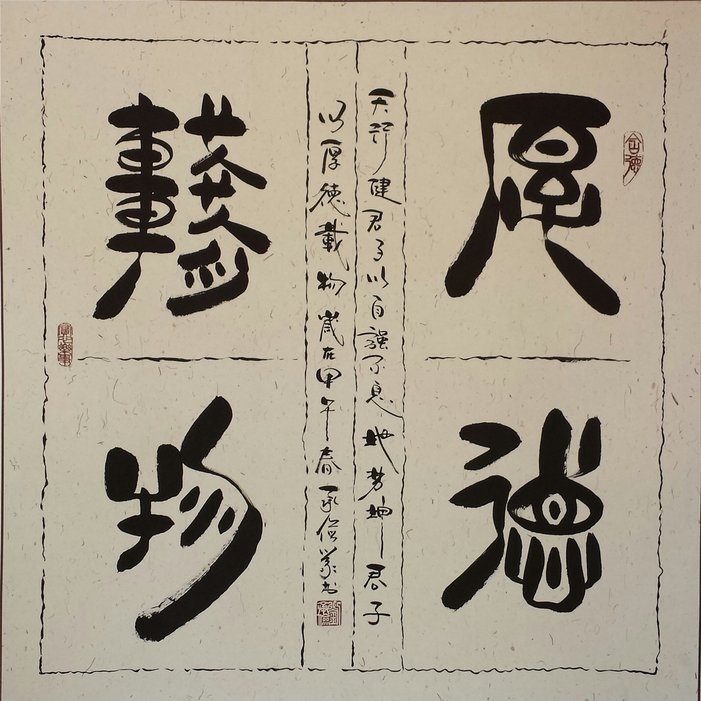 厚德
天行健君子以自强不息地势坤君子
以厚德載物歲在甲午春
載物